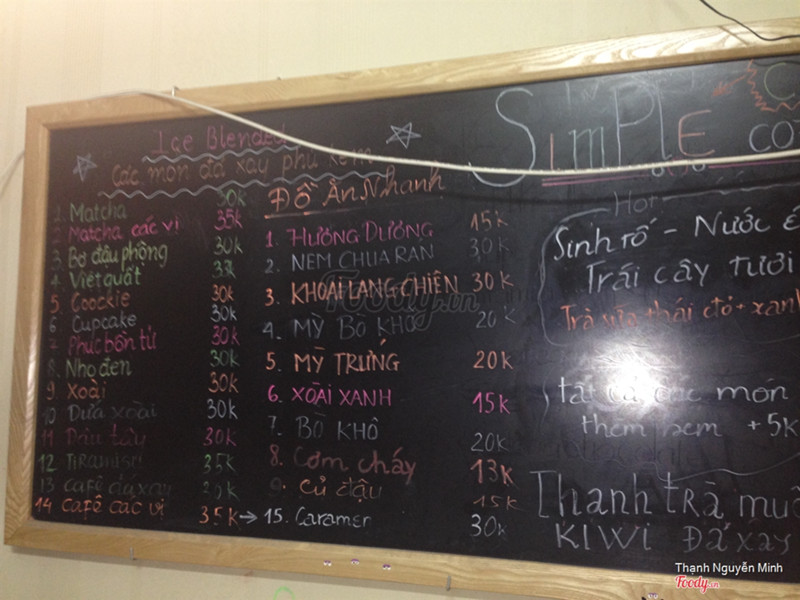 Ice Blended
Các món đá xay phủ kem
1 Matcha 30k
2 Matcha các vị 35k
3 Bơ đậu phộng 30k
4 Việt quất
5. Coockie 30k
6 Cupcake 30k
7 Phúc bồn tử 30k
8. Nho đen 30k
9 Xoài 30k
10 Dưa xoài 30k
11 Dâu tây 30k
12 Tiramisu 35k
13 Café đá xay
14 Café các vị 35k → 15. Caramer 30k
Đồ Ăn Nhanh
1. HƯỚNG DƯƠNG 15k
2. NEM CHUA RÁN 30k
3. KHOAI LANG CHIÊN 30k
4. MỲ BÒ KHÔ 20k
5. MỲ TRỨNG 20k
6. XOÀI XANH 15k
7. BÒ KHÔ 20k
8. Cơm cháy 13k
9. Củ đậu 15k
SimPlE
Hot
Sinh tố - Nước é
Trái cây tươi
Trà sữa thái đỏ + xanh
tất cả các món
thêm kem +5k
Thanh trà muố
KIWI Đá xay
Foody.vn
Thạnh Nguyễn Minh
Foody.vn